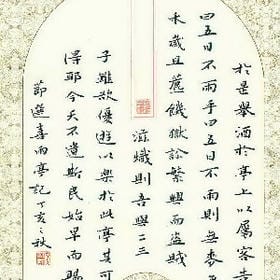 於是舉酒於亭上以屬客告
曰五日不雨乎曰五日不雨則無麥無
禾歲且薦饑獄訟繁興而盜賊
滋熾則吾與二三
子雖欲優遊以樂於此亭其可
得耶今天不遺斯民始旱而賜
節選喜雨亭記丁亥之秋